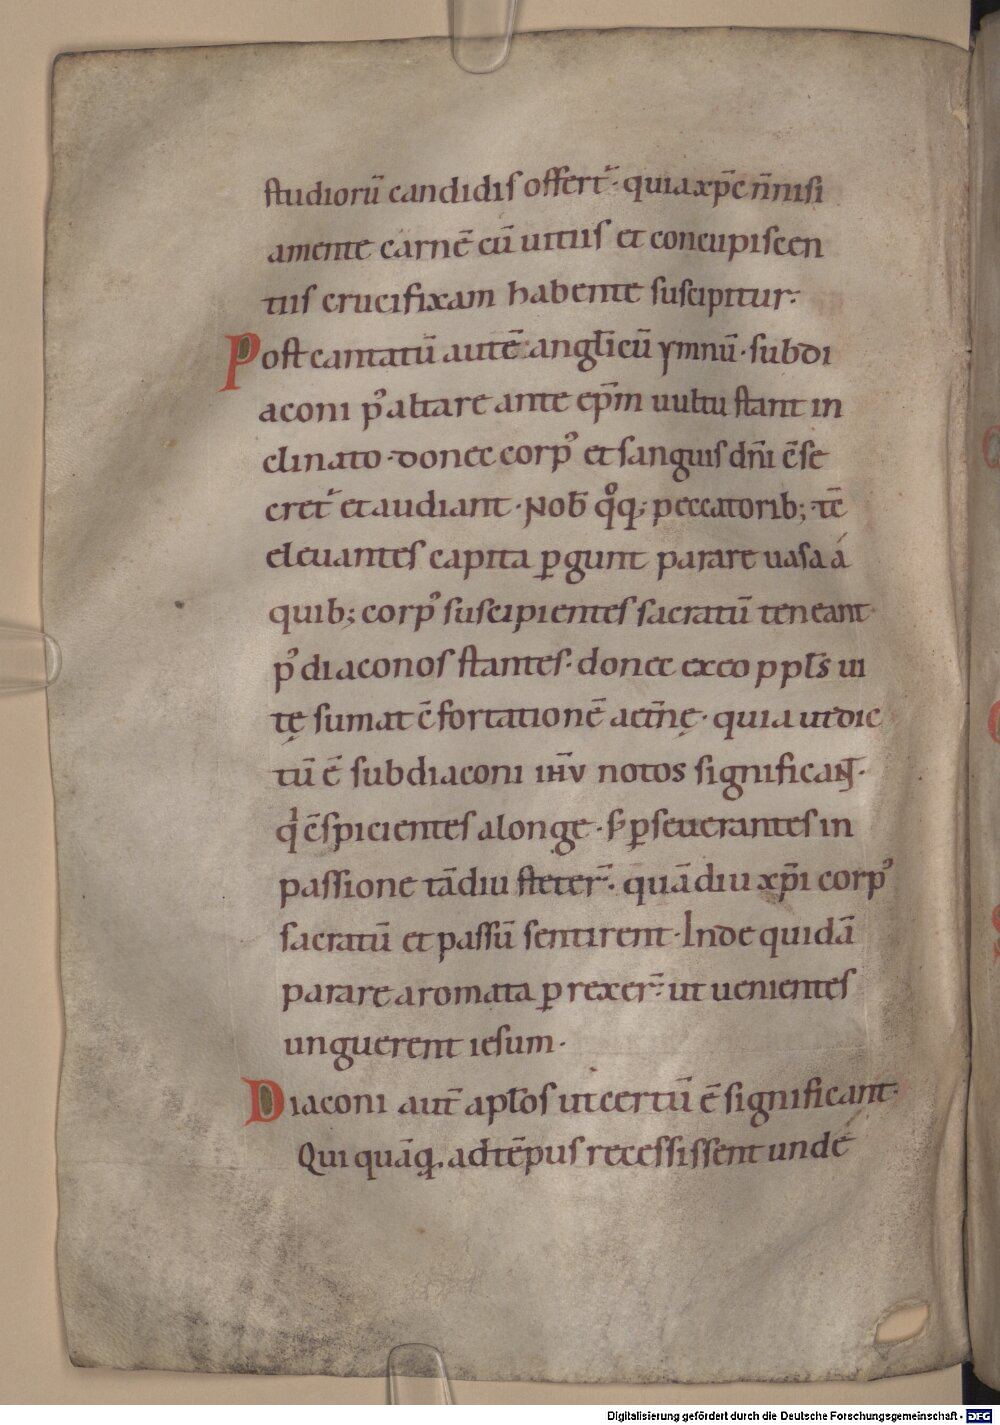 studiorū candidis offert᷑· quia xp̄c n̄ nisi
a mente carnē cū uitiis et concupiscen
tiis crucifixam habente suscipitur·
Post cantatū autē angl̄icū ymnū· subdi
aconi pꝰ altare ante ep̄m uultu stant in
clinato· donec corpꝰ et sanguis dn̄i c̄se
cret᷑ et audiant· Nob̄ qͦq; peccatorib;· tē
eleuantes capita ꝑgunt parare uasa á
quib; corpꝰ suscipientes sacratū teneant
pꝰ diaconos stantes· donec ex eo ppl̄s ui
tę sumat c̄fortationē aet̄nę· quia ut dic
tū ē subdiaconi ih̄v notos significant·
q c̄spicientes a longe· s; ꝑseuerantes in
passione tādiu steter̄· quādiu xp̄i corpꝰ
sacratū et passū sentirent· Inde quidā
parare aromata ꝑrexer̄· ut uenientes
unguerent iesum·
Diaconi aut̄ apl̄os ut certū ē significant·
Qui quāq· ad tēpus recessissent unde
Digitalisierung gefördert durch die Deutsche Forschungsgemeinschaft - DFG